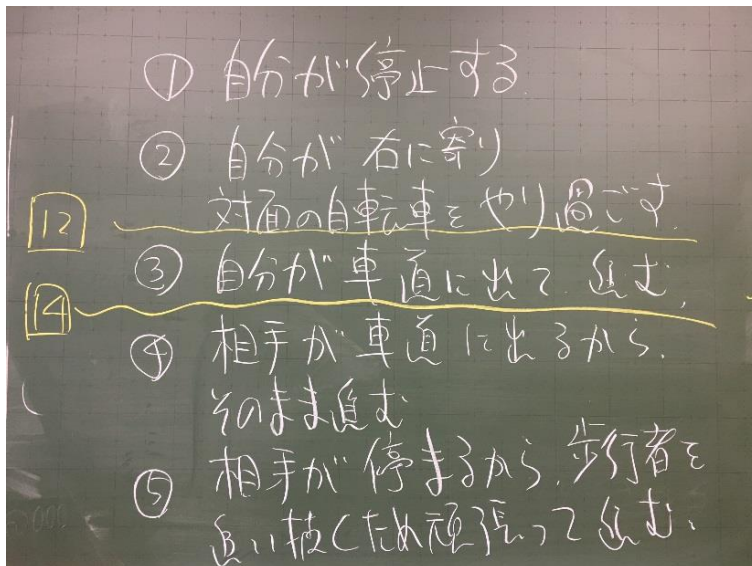 ① 自分が停止する
② 自分が右に寄り
対面の自転車をやり過ごす.
12
③ 自分が車道に出て進む,
14
④ 相手が車道に出るから,
そのまま進む
⑤ 相手が停まるから,歩行者を
追い抜くため頑張って進む,